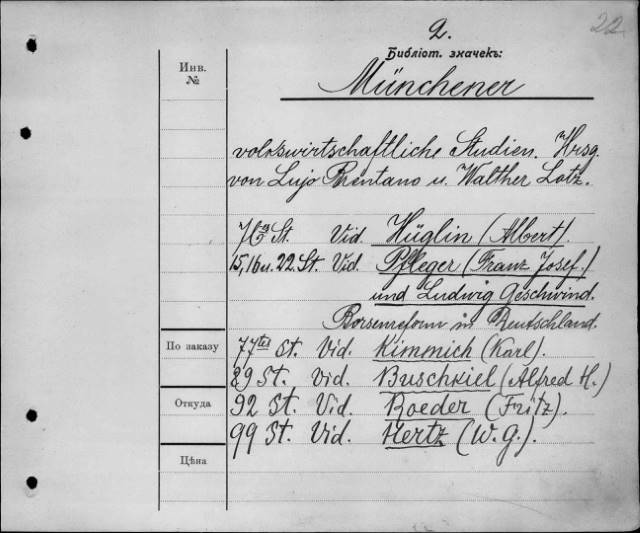 22
2.
Библіот. значекъ:
Инв.
№
Münchener
volkswirtschaftliche Studien. Hrsg.
von Lujo Brentano u. Walther Lotz.
St. Vid. Hüglin (Albert).
15, 16 u. 22. St. Vid. Pfleger (Franz Josef.)
und Ludwig Geschwind.
Börsenreform in Deutschland.
По заказу
77tes St. Vid. Kimmich (Karl).
89 St. Vid. Buschkiel (Alfred H.)
Откуда
92 St. Vid. Roeder (Fritz).
99 St. Vid. Hertz (W. G.).
Цѣна